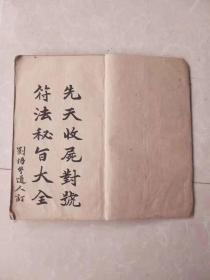 先天收屍對號
符法秘旨大全
劉培學道人訂